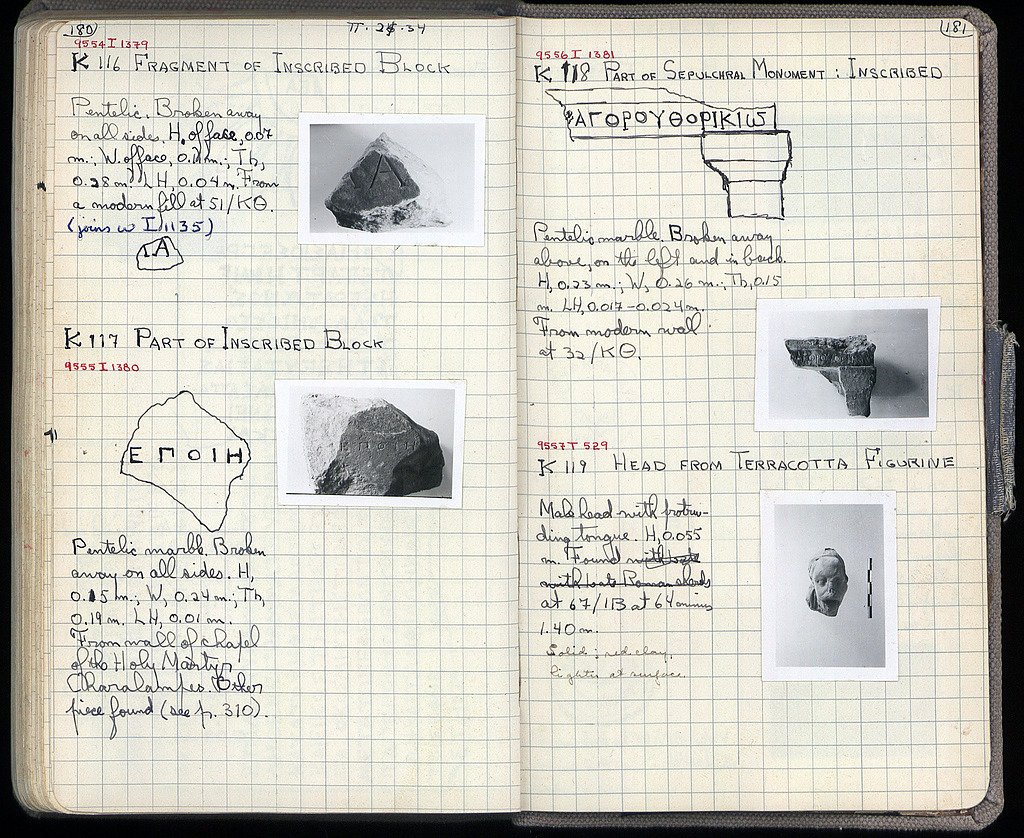 180
II. 24.34
9554 I 1379
K 116 FRAGMENT OF INSCRIBED BLOCK
Pentelic. Broken away
on all sides. H. of face, 0.07
m.; W. of face, 0.11 m.; Th,
0.28 m. LH, 0.04 m. From
a modern fill at 51/ΚΘ.
(joins w I 1135)
ΙΑ
ΙΑ
K 117 PART OF INSCRIBED BLOCK
9555 I 1380
ΕΠΟΙΗ
ΕΠΟΙΗ
Pentelic marble. Broken
away on all sides. H,
0.15 m.; W, 0.24 m.; Th,
0.19 m. LH, 0.01 m.
From wall of chapel
of the Holy Martyr
Charalampes. Other
piece found (see p. 310).
181
9556 I 1381
K 118 PART OF SEPULCHRAL MONUMENT : INSCRIBED
ΑΓΟΡΟΥΘΟΡΙΚΙω
Pentelic marble. Broken away
above, on the left and in back.
H, 0.23 m.; W, 0.26 m.; Th, 0.15
m. LH, 0.017-0.024 m.
From modern wall
at 32/ΚΘ.
9557 T 529
K 119 HEAD FROM TERRACOTTA FIGURINE
Male head with protru-
ding tongue. H, 0.055
m. Found with late
with late Roman sherds
at 67/ΙΒ at 64 minus
1.40 m.
Solid; red clay,
lighter at surface.